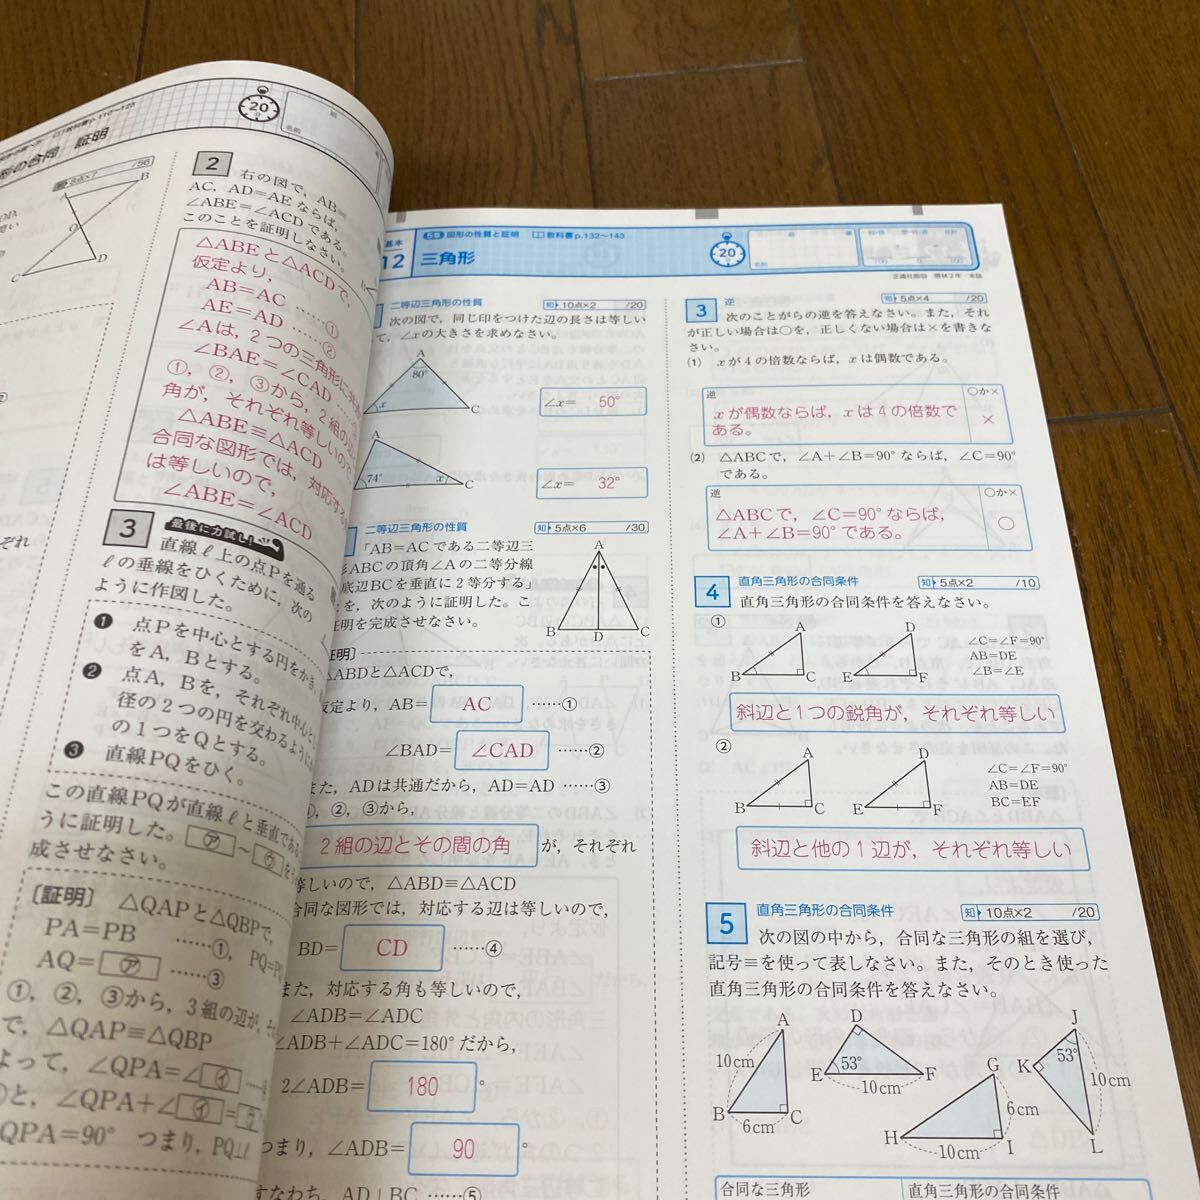 教科書p.110〜125
形の合同 証明
20分
組
名前
8点×7 /56
A
B
O
C
D
2
右の図で，AB=
AC，AD=AEならば，
∠ABE=∠ACDである。
このことを証明しなさい。
△ABEと△ACDで，
仮定より，
AB=AC ……①
AE=AD ……②
∠Aは，2つの三角形に共
∠BAE=∠CAD
①，②，③から，2組の
角が，それぞれ等しいので
△ABE≡△ACD
合同な図形では，対応する
は等しいので，
∠ABE=∠ACD
3
最後に力試し！
直線ℓ上の点Pを通る
ℓの垂線をひくために，次の
ように作図した。
❶ 点Pを中心とする円をかき，
をA，Bとする。
❷ 点A，Bを，それぞれ中心とし
径の2つの円を交わるように
の1つをQとする。
❸ 直線PQをひく。
この直線PQが直線ℓと垂直である
うに証明した。㋐〜㋒を
成させなさい。
〔証明〕 △QAPと△QBPで，
PA=PB ……①，PQ=P
AQ=㋐ ……③
①，②，③から，3組の辺が，そ
で，△QAP≡△QBP
よって，∠QPA=∠㋑
のと，∠QPA+∠㋑=㋒
QPA=90° つまり，PQ⊥ℓ
基本
12
5章 図形の性質と証明 教科書p.132〜143
三角形
20分
組
名前
知・技 思・判・表 合計
/100 /0 /100
正進社図版 啓林2年・本誌
二等辺三角形の性質
知 10点×2 /20
次の図で，同じ印をつけた辺の長さは等しい
て，∠xの大きさを求めなさい。
A
80°
x
C
∠x= 50°
A
74°
x
C
∠x= 32°
二等辺三角形の性質
知 5点×6 /30
「AB=ACである二等辺三
形ABCの頂角∠Aの二等分線
底辺BCを垂直に2等分する」
とを，次のように証明した。こ
証明を完成させなさい。
A
B
D
C
証明〕
△ABDと△ACDで，
仮定より，AB= AC ……①
∠BAD= ∠CAD ……②
また，ADは共通だから，AD=AD ……③
①，②，③から，
2組の辺とその間の角 が，それぞれ
等しいので，△ABD≡△ACD
合同な図形では，対応する辺は等しいので，
BD= CD ……④
また，対応する角も等しいので，
∠ADB=∠ADC
∠ADB+∠ADC=180°だから，
2∠ADB= 180 °
つまり，∠ADB= 90 °
すなわち，AD⊥BC ……⑤
3
逆
知 5点×4 /20
次のことがらの逆を答えなさい。また，それ
が正しい場合は○を，正しくない場合は×を書きな
さい。
(1) xが4の倍数ならば，xは偶数である。
逆
xが偶数ならば，xは4の倍数で
ある。
○か×
×
(2) △ABCで，∠A+∠B=90°ならば，∠C=90°
である。
逆
△ABCで，∠C=90°ならば，
∠A+∠B=90°である。
○か×
○
4
直角三角形の合同条件
知 5点×2 /10
直角三角形の合同条件を答えなさい。
①
A
B
C
D
E
F
∠C=∠F=90°
AB=DE
∠B=∠E
斜辺と1つの鋭角が，それぞれ等しい
②
A
B
C
D
E
F
∠C=∠F=90°
AB=DE
BC=EF
斜辺と他の1辺が，それぞれ等しい
5
直角三角形の合同条件
知 10点×2 /20
次の図の中から，合同な三角形の組を選び，
記号≡を使って表しなさい。また，そのとき使った
直角三角形の合同条件を答えなさい。
A
10cm
B
6cm
C
D
E
53°
10cm
F
G
6cm
H
10cm
I
J
K
53°
10cm
L
合同な三角形
直角三角形の合同条件